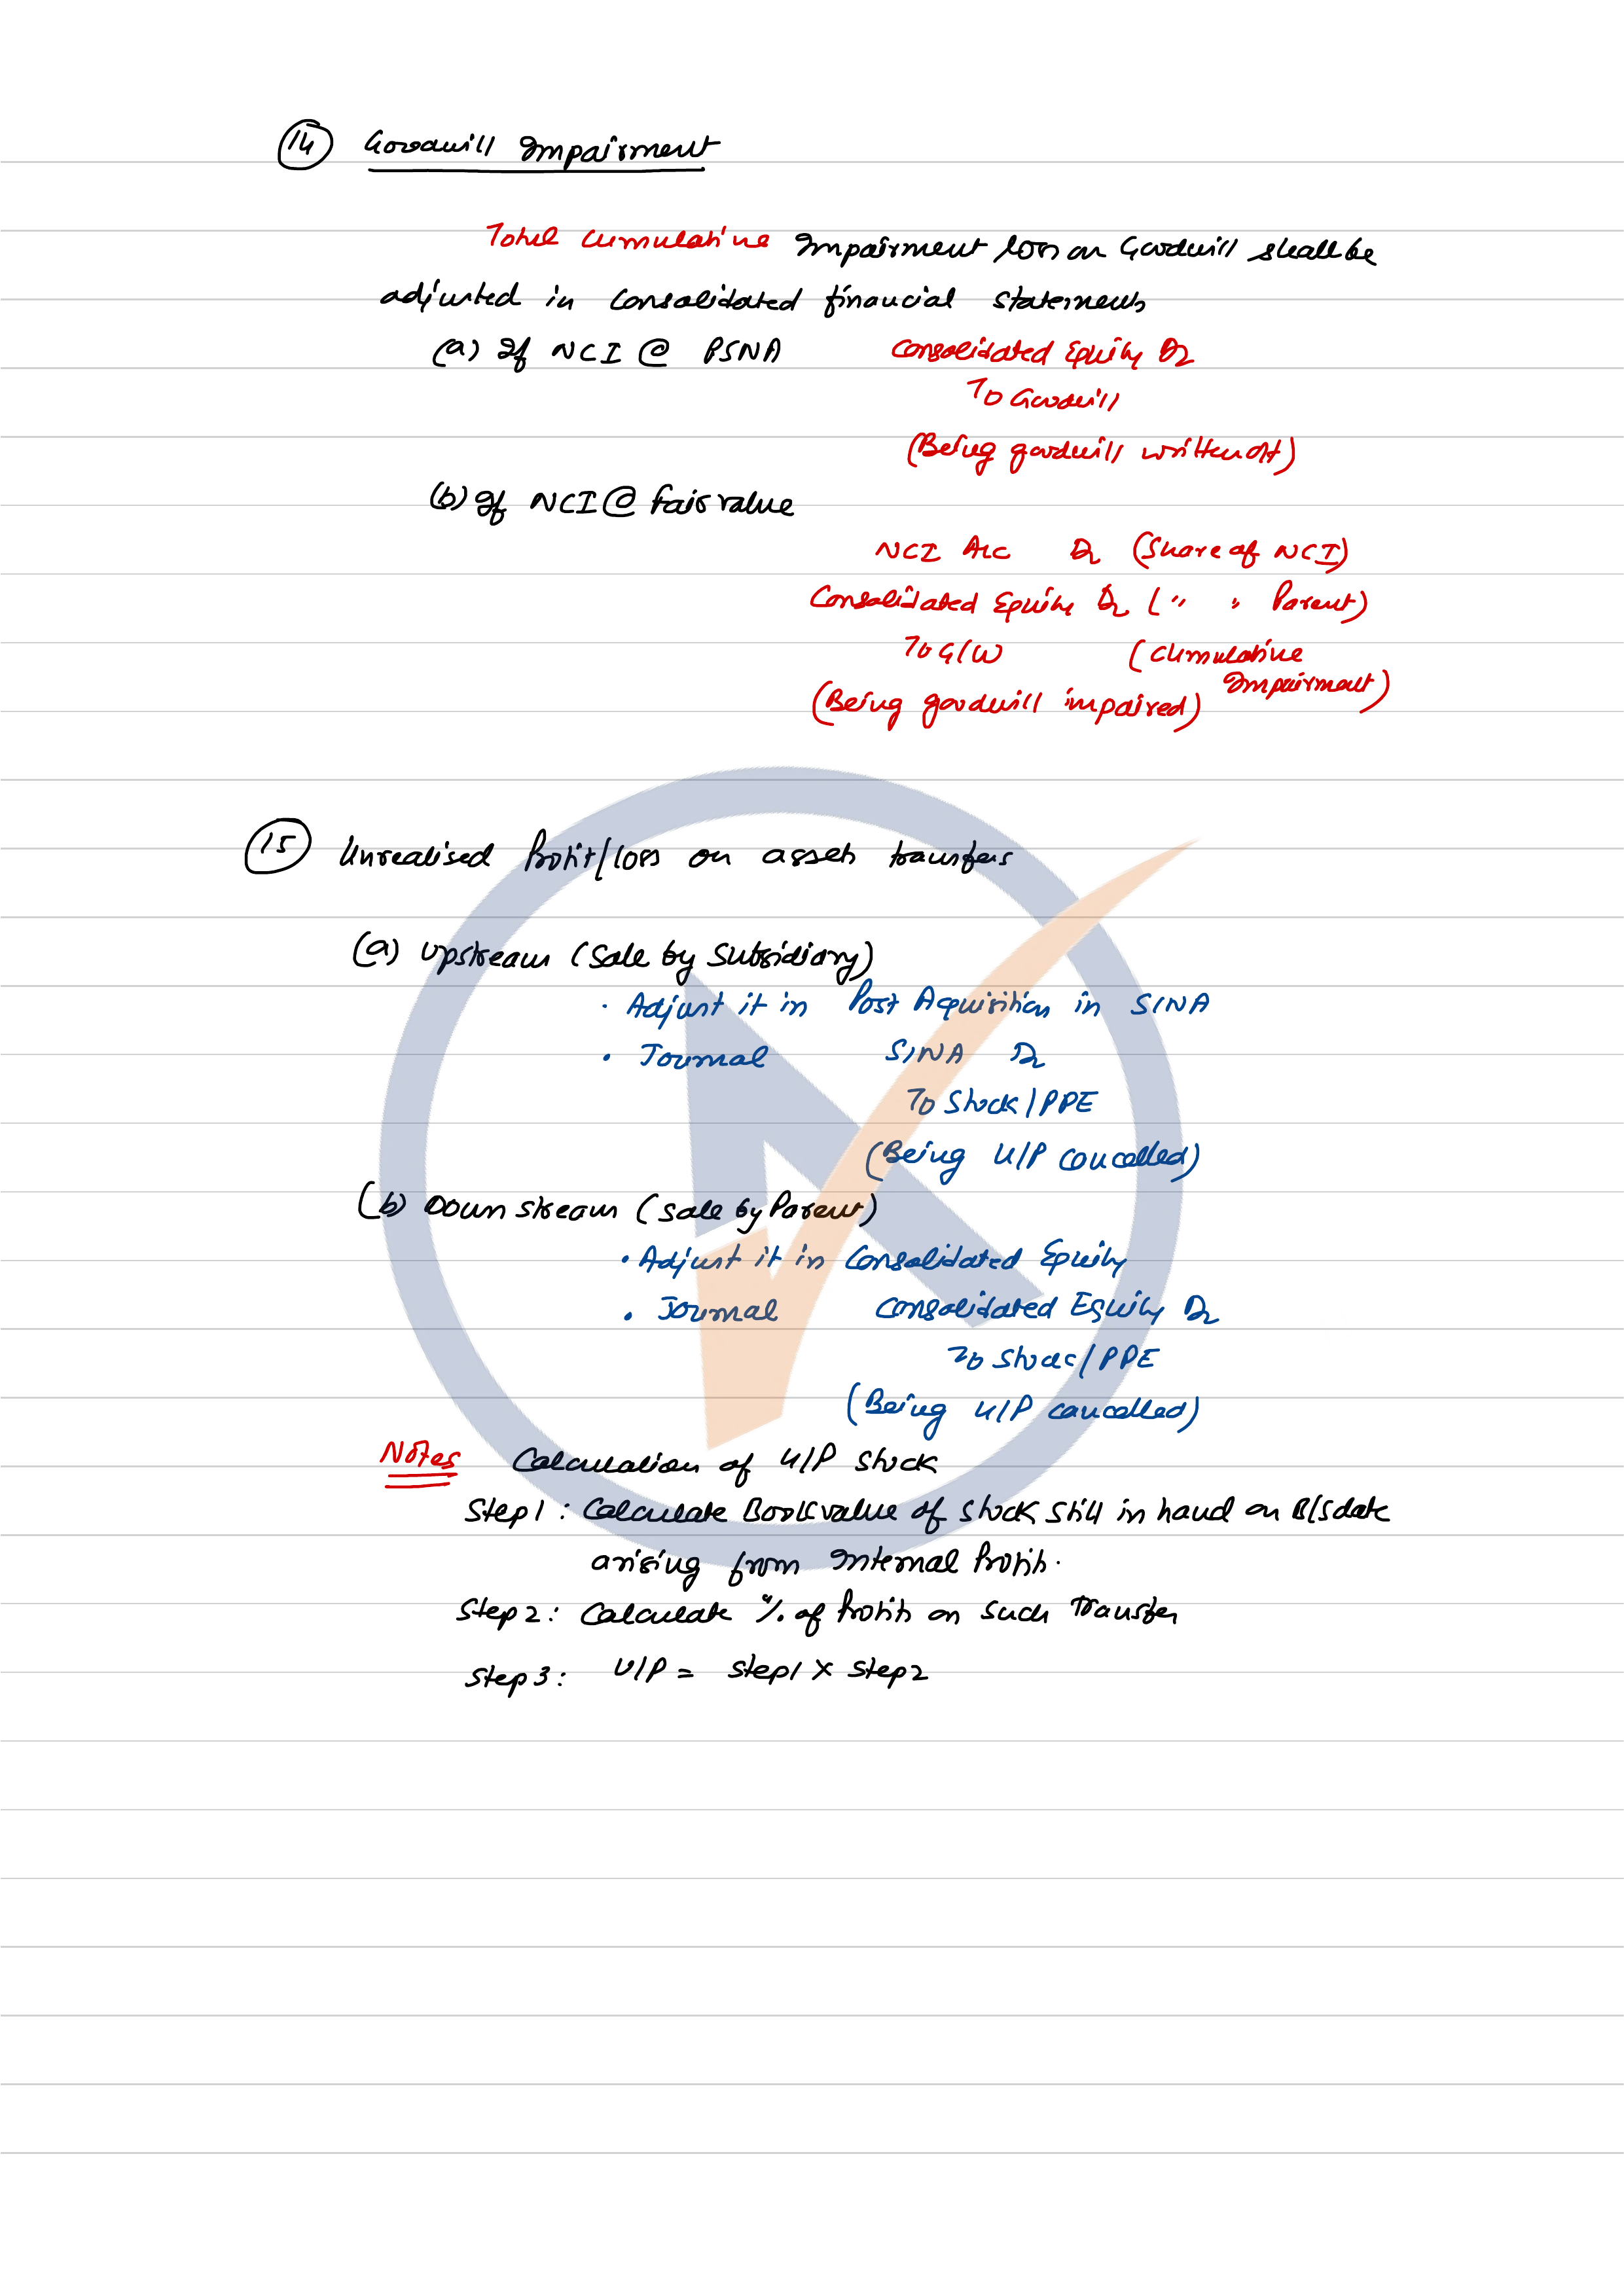 14 Goodwill Impairment
Total cumulative Impairment loss on Goodwill shall be
adjusted in consolidated financial statements
(a) If NCI @ PSNA Consolidated Equity Dr
To Goodwill
(Being goodwill written off)
(b) If NCI @ Fair value
NCI A/c Dr (Share of NCI)
Consolidated Equity Dr ( " " Parent)
To G/W (cumulative
Impairment)
(Being goodwill impaired)
15 Unrealised Profit/loss on assets transfers
(a) Upstream (Sale by Subsidiary)
• Adjust it in Post Acquisition in SINA
• Journal SINA Dr
To Stock/PPE
(Being U/P cancelled)
(b) Down stream (Sale by Parent)
• Adjust it in Consolidated Equity
• Journal Consolidated Equity Dr
To Stock/PPE
(Being U/P cancelled)
Notes Calculation of U/P Stock
Step 1 : Calculate Book value of stock still in hand on B/S date
arising from Internal Profit.
Step 2 : Calculate % of Profit on such Transfer
Step 3 : U/P = Step 1 × Step 2